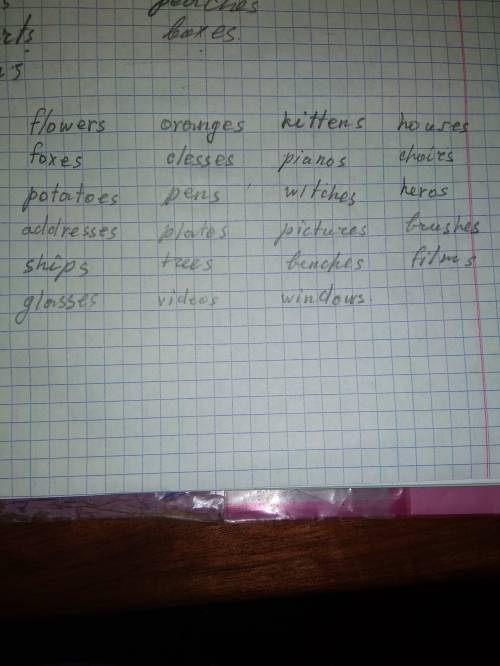 peaches
rts
boxes.
ns
flowers oranges kittens houses
foxes clesses pianos choirs
potatoes pens witches heros
addresses plates pictures brushes
ships trees benches films
glasses videos windows